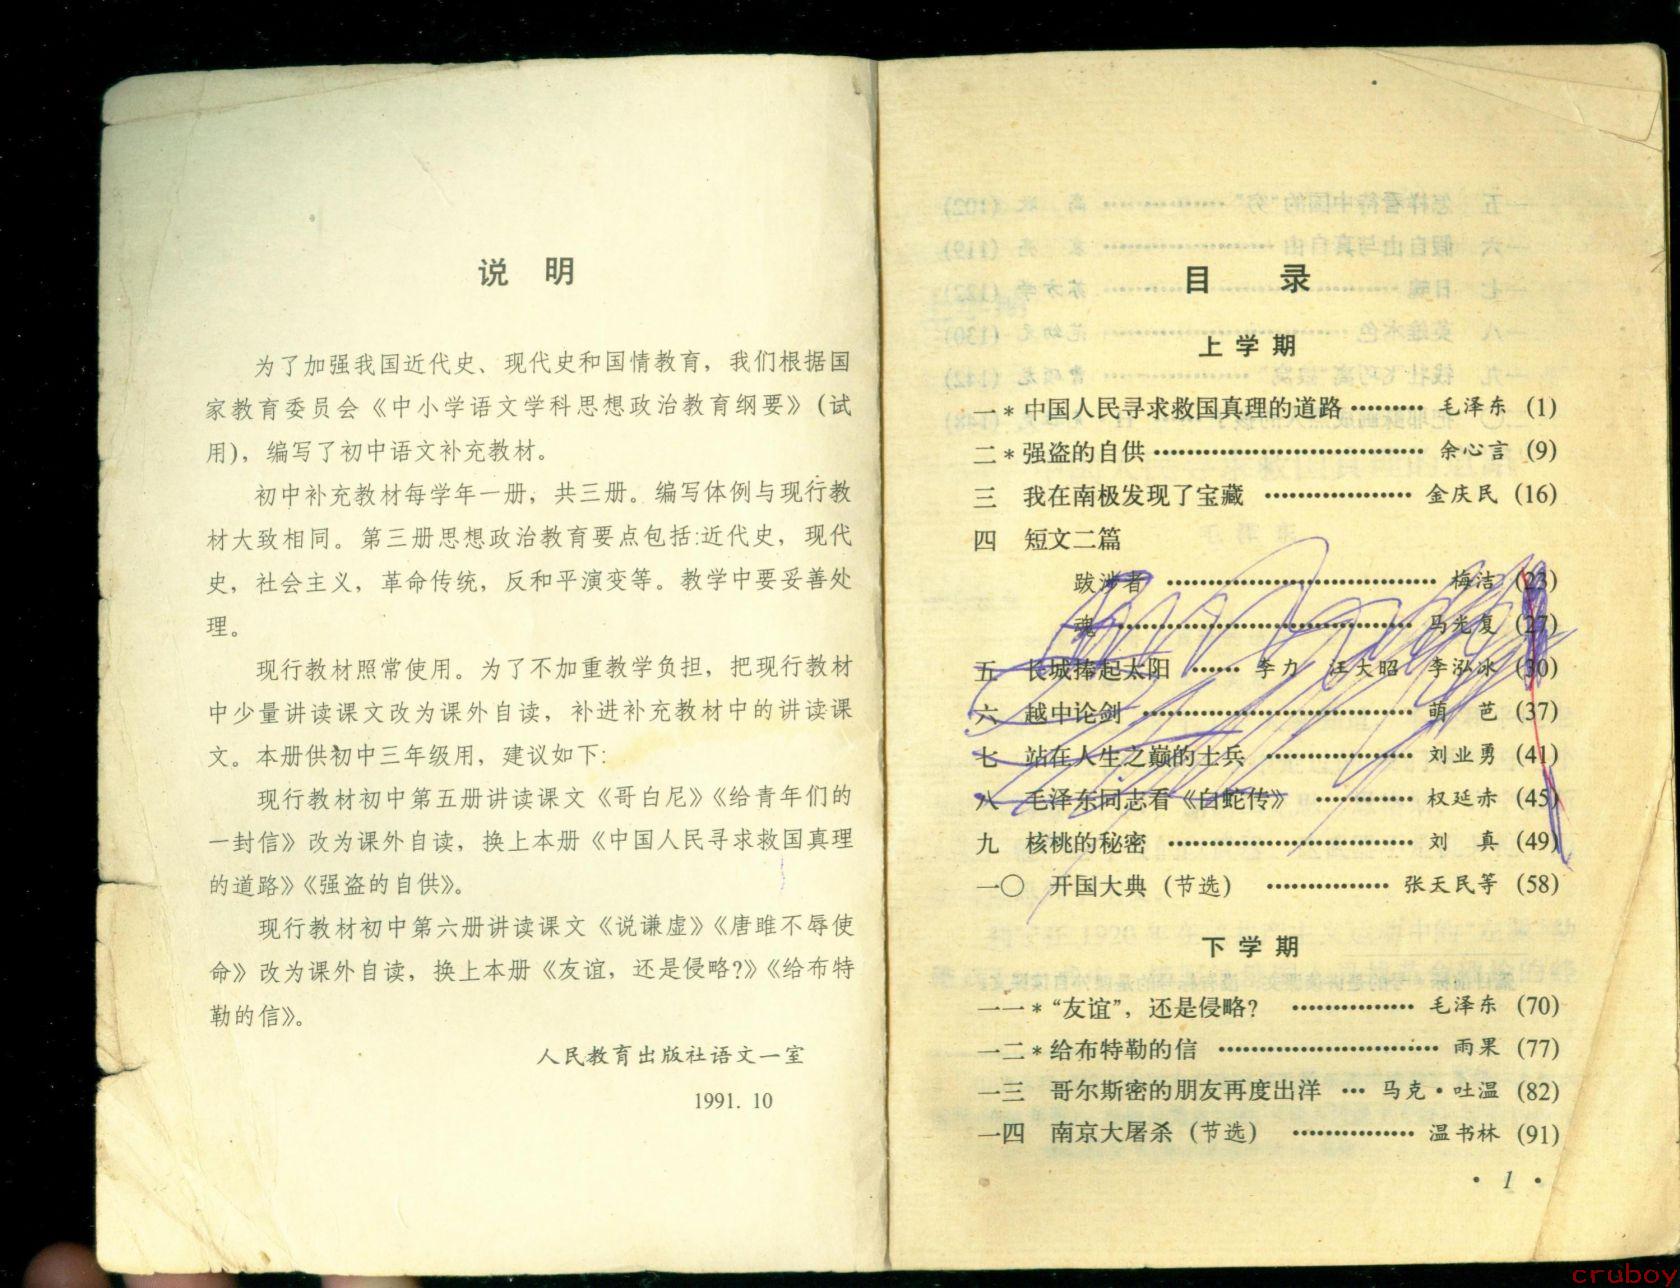 说 明
为了加强我国近代史、现代史和国情教育，我们根据国
家教育委员会《中小学语文学科思想政治教育纲要》(试
用)，编写了初中语文补充教材。
初中补充教材每学年一册，共三册。编写体例与现行教
材大致相同。第三册思想政治教育要点包括:近代史，现代
史，社会主义，革命传统，反和平演变等。教学中要妥善处
理。
现行教材照常使用。为了不加重教学负担，把现行教材
中少量讲读课文改为课外自读，补进补充教材中的讲读课
文。本册供初中三年级用，建议如下:
现行教材初中第五册讲读课文《哥白尼》《给青年们的
一封信》改为课外自读，换上本册《中国人民寻求救国真理
的道路》《强盗的自供》。
现行教材初中第六册讲读课文《说谦虚》《唐雎不辱使
命》改为课外自读，换上本册《友谊，还是侵略?》《给布特
勒的信》。
人民教育出版社语文一室
1991. 10
目 录
上学期
一*中国人民寻求救国真理的道路 ········· 毛泽东 (1)
二*强盗的自供 ································· 余心言 (9)
三 我在南极发现了宝藏 ·················· 金庆民 (16)
四 短文二篇
跋涉者 ································· 梅洁 (23)
魂 ····································· 马光复 (27)
五 长城捧起太阳 ······ 李力 汪大昭 李泓冰 (30)
六 越中论剑 ································· 萌 芭 (37)
七 站在人生之巅的士兵 ·················· 刘业勇 (41)
八 毛泽东同志看《白蛇传》 ············ 权延赤 (45)
九 核桃的秘密 ······························ 刘 真 (49)
一〇 开国大典(节选) ··············· 张天民等 (58)
下学期
一一*“友谊”，还是侵略? ··············· 毛泽东 (70)
一二*给布特勒的信 ··························· 雨果 (77)
一三 哥尔斯密的朋友再度出洋 ··· 马克·吐温 (82)
一四 南京大屠杀(节选) ··············· 温书林 (91)
· 1 ·
cruboy